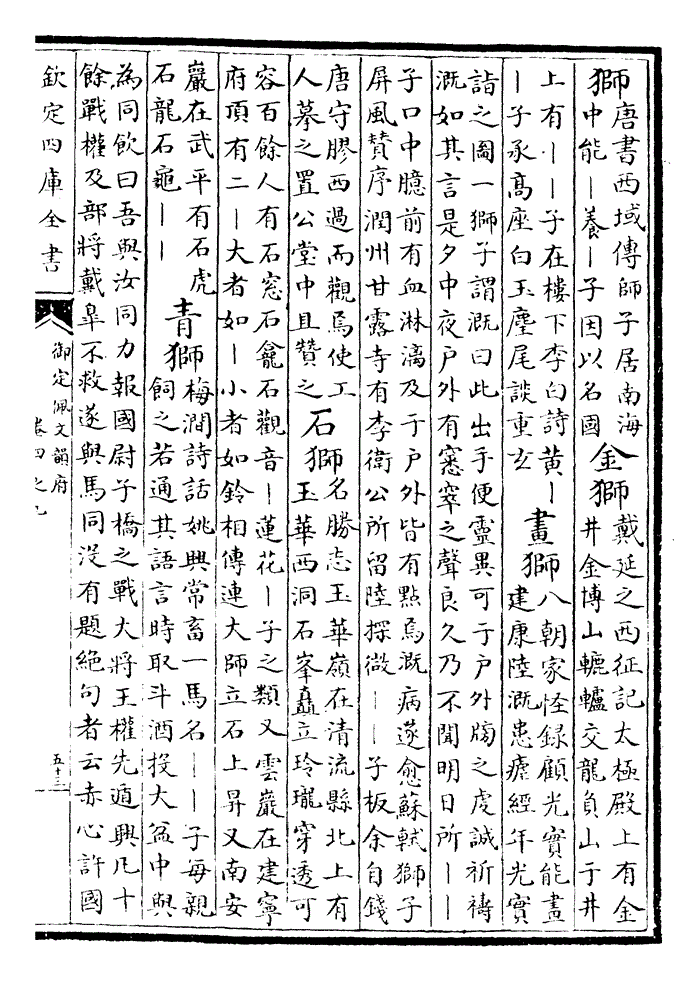 獅
唐書西域傳師子居南海
中能｜養｜子因以名國
金獅
戴延之西征記太極殿上有金
井金博山轆轤交龍負山于井
上有｜｜子在樓下李白詩黃｜
｜子承高座白玉麈尾談重玄
畫獅
八朝家怪録顧光寳能畫
建康陸溉患瘧經年光寳
詣之圖一獅子謂溉曰此出手便靈異可于戶外牓之䖍誠祈禱
溉如其言是夕中夜戶外有窸窣之聲良久乃不聞明日所｜｜
子口中臆前有血淋漓及于戶外皆有點焉溉病遂愈蘇軾獅子
屏風贊序潤州甘露寺有李衛公所留陸探微｜｜子板余自錢
唐守膠西過而觀焉使工
人摹之置公堂中且贊之
石獅
名勝志玉華嶺在清流縣北上有
玉華西洞石峯矗立玲瓏穿透可
容百餘人有石窓石龕石觀音｜蓮花｜子之類又雲巖在建寧
府頂有二｜大者如｜小者如鈴相傳連大師立石上昇又南安
巖在武平有石虎
石龍石龜｜｜
青獅
梅澗詩話姚興常畜一馬名｜｜子每親
飼之若通其語言時取斗酒投大盆中與
為同飲曰吾與汝同力報國尉子橋之戰大將王權先遁興凡十
餘戰權及部將戴臯不救遂與馬同没有題絶句者云赤心許國
欽定四庫全書
御定佩文韻府
卷四之九
五十三